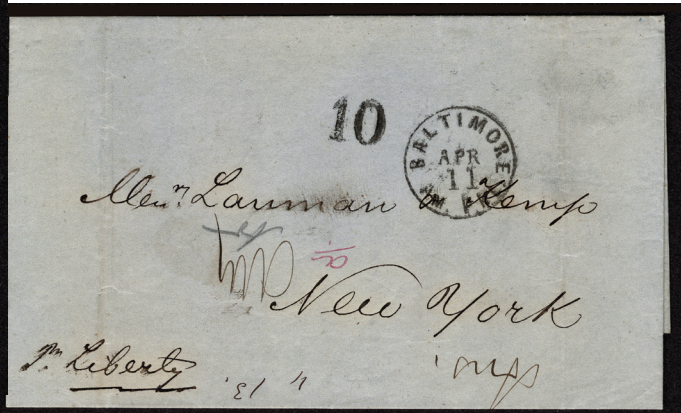 10
BALTIMORE
APR
11
Messrs. Lanman & Kemp
New York
pr. Liberty